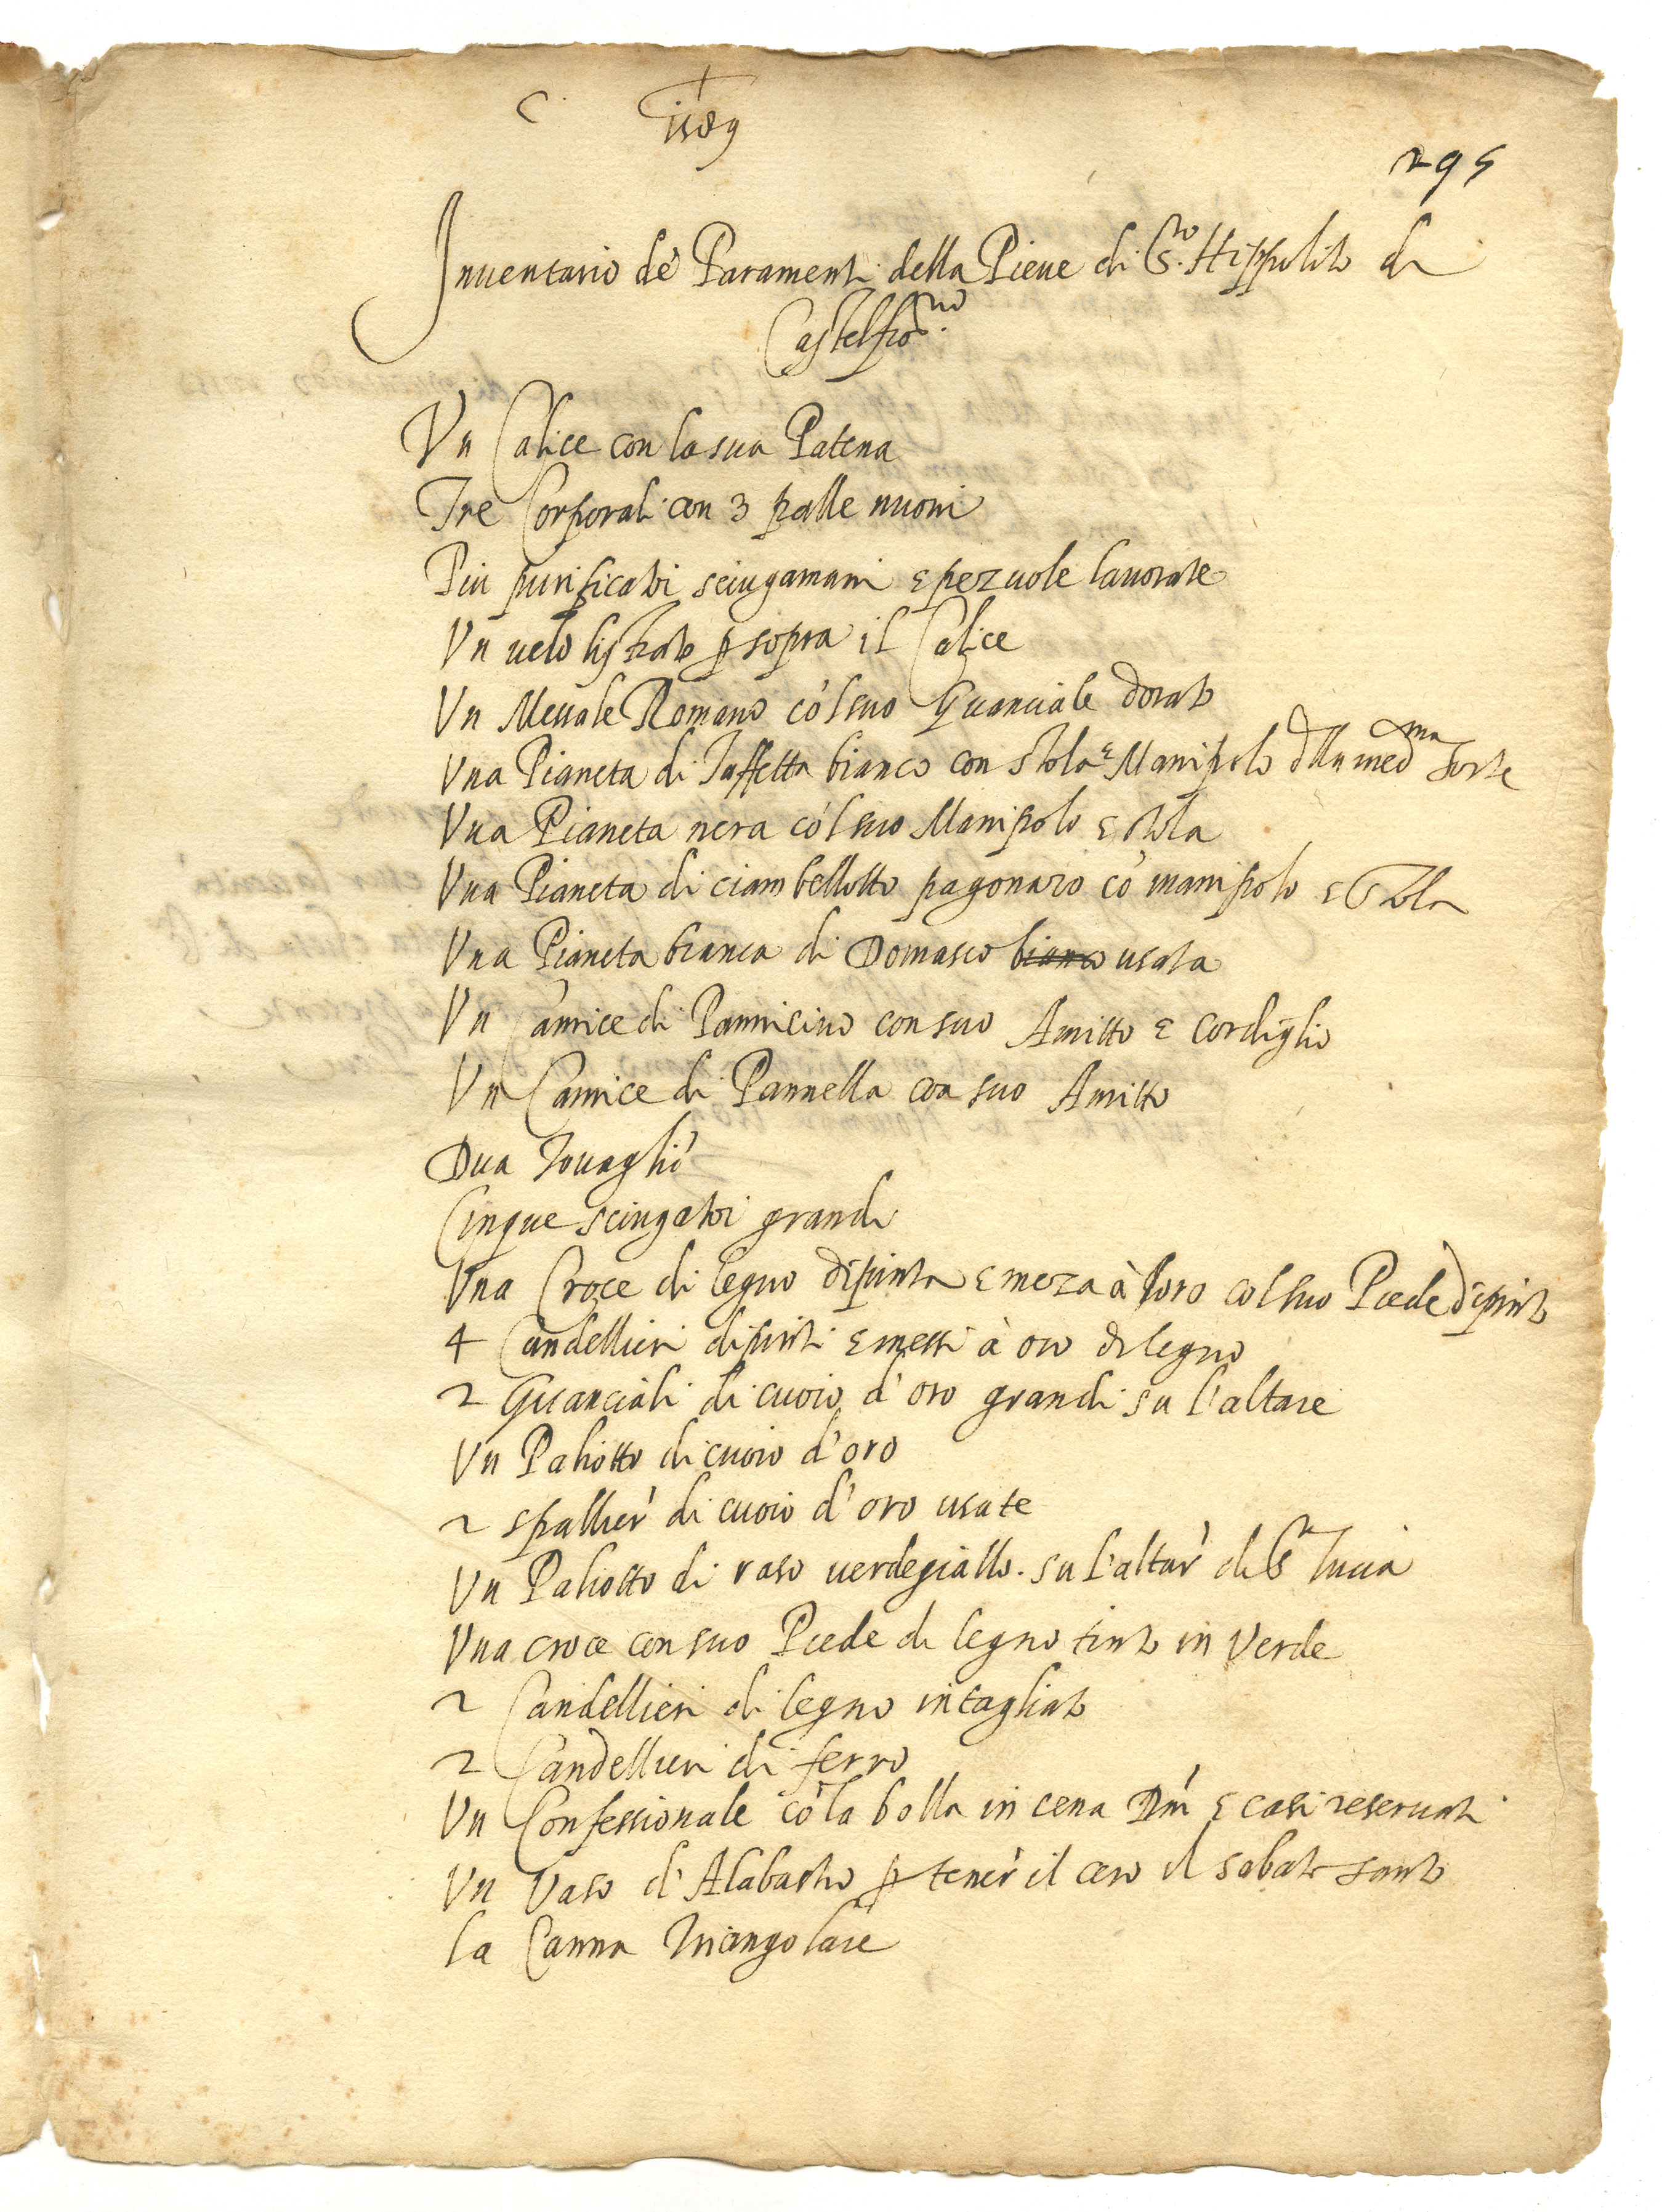 C. 1589
295
Inuentario de' Paramenti della Pieue di S.to Hippolito di
Castelfio.no
Vn Calice con la sua Patena
Tre Corporali con 3 palle nuoui
Piu purificatoi sciugamani e pezuole lauorate
Vn uelo listrato p sopra il Calice
Vn Messale Romano co'l suo Guanciale dorato
Vna Pianeta di Taffetta bianco con stola e Manipolo d'lla med.ma sorte
Vna Pianeta nera co'l suo Manipolo e stola
Vna Pianeta di ciambellotto pagonazo co' manipolo e stola
Vna Pianeta bianca di Domasco bianco usata
Vn Camice di Pannicino con suo Amitto e cordiglio
Vn Camice di Pannella con suo Amitto
Dua Touaglie
Cinque sciugatoi grandi
Vna Croce di legno dipinta e meza à loro col suo Piede dipinto
4 Candellieri dipinti e messi à oro di legno
2 Guanciali di cuoio d'oro grandi su l'altare
Vn Paliotto di cuoio d'oro
2 spallier' di cuoio d'oro usate
Vn Paliotto di raso uerdegiallo. su l'altar' di S.ta lucia
Vna croce con suo Piede di legno tinto in verde
2 Candellieri di legno intagliato
2 Candellieri di ferro
Vn Confessionale co' la bolla in cena Dni e casi reseruati
Vn Vaso d'Alabastro p tener' il cero il sabato santo
la Canna Triangolare